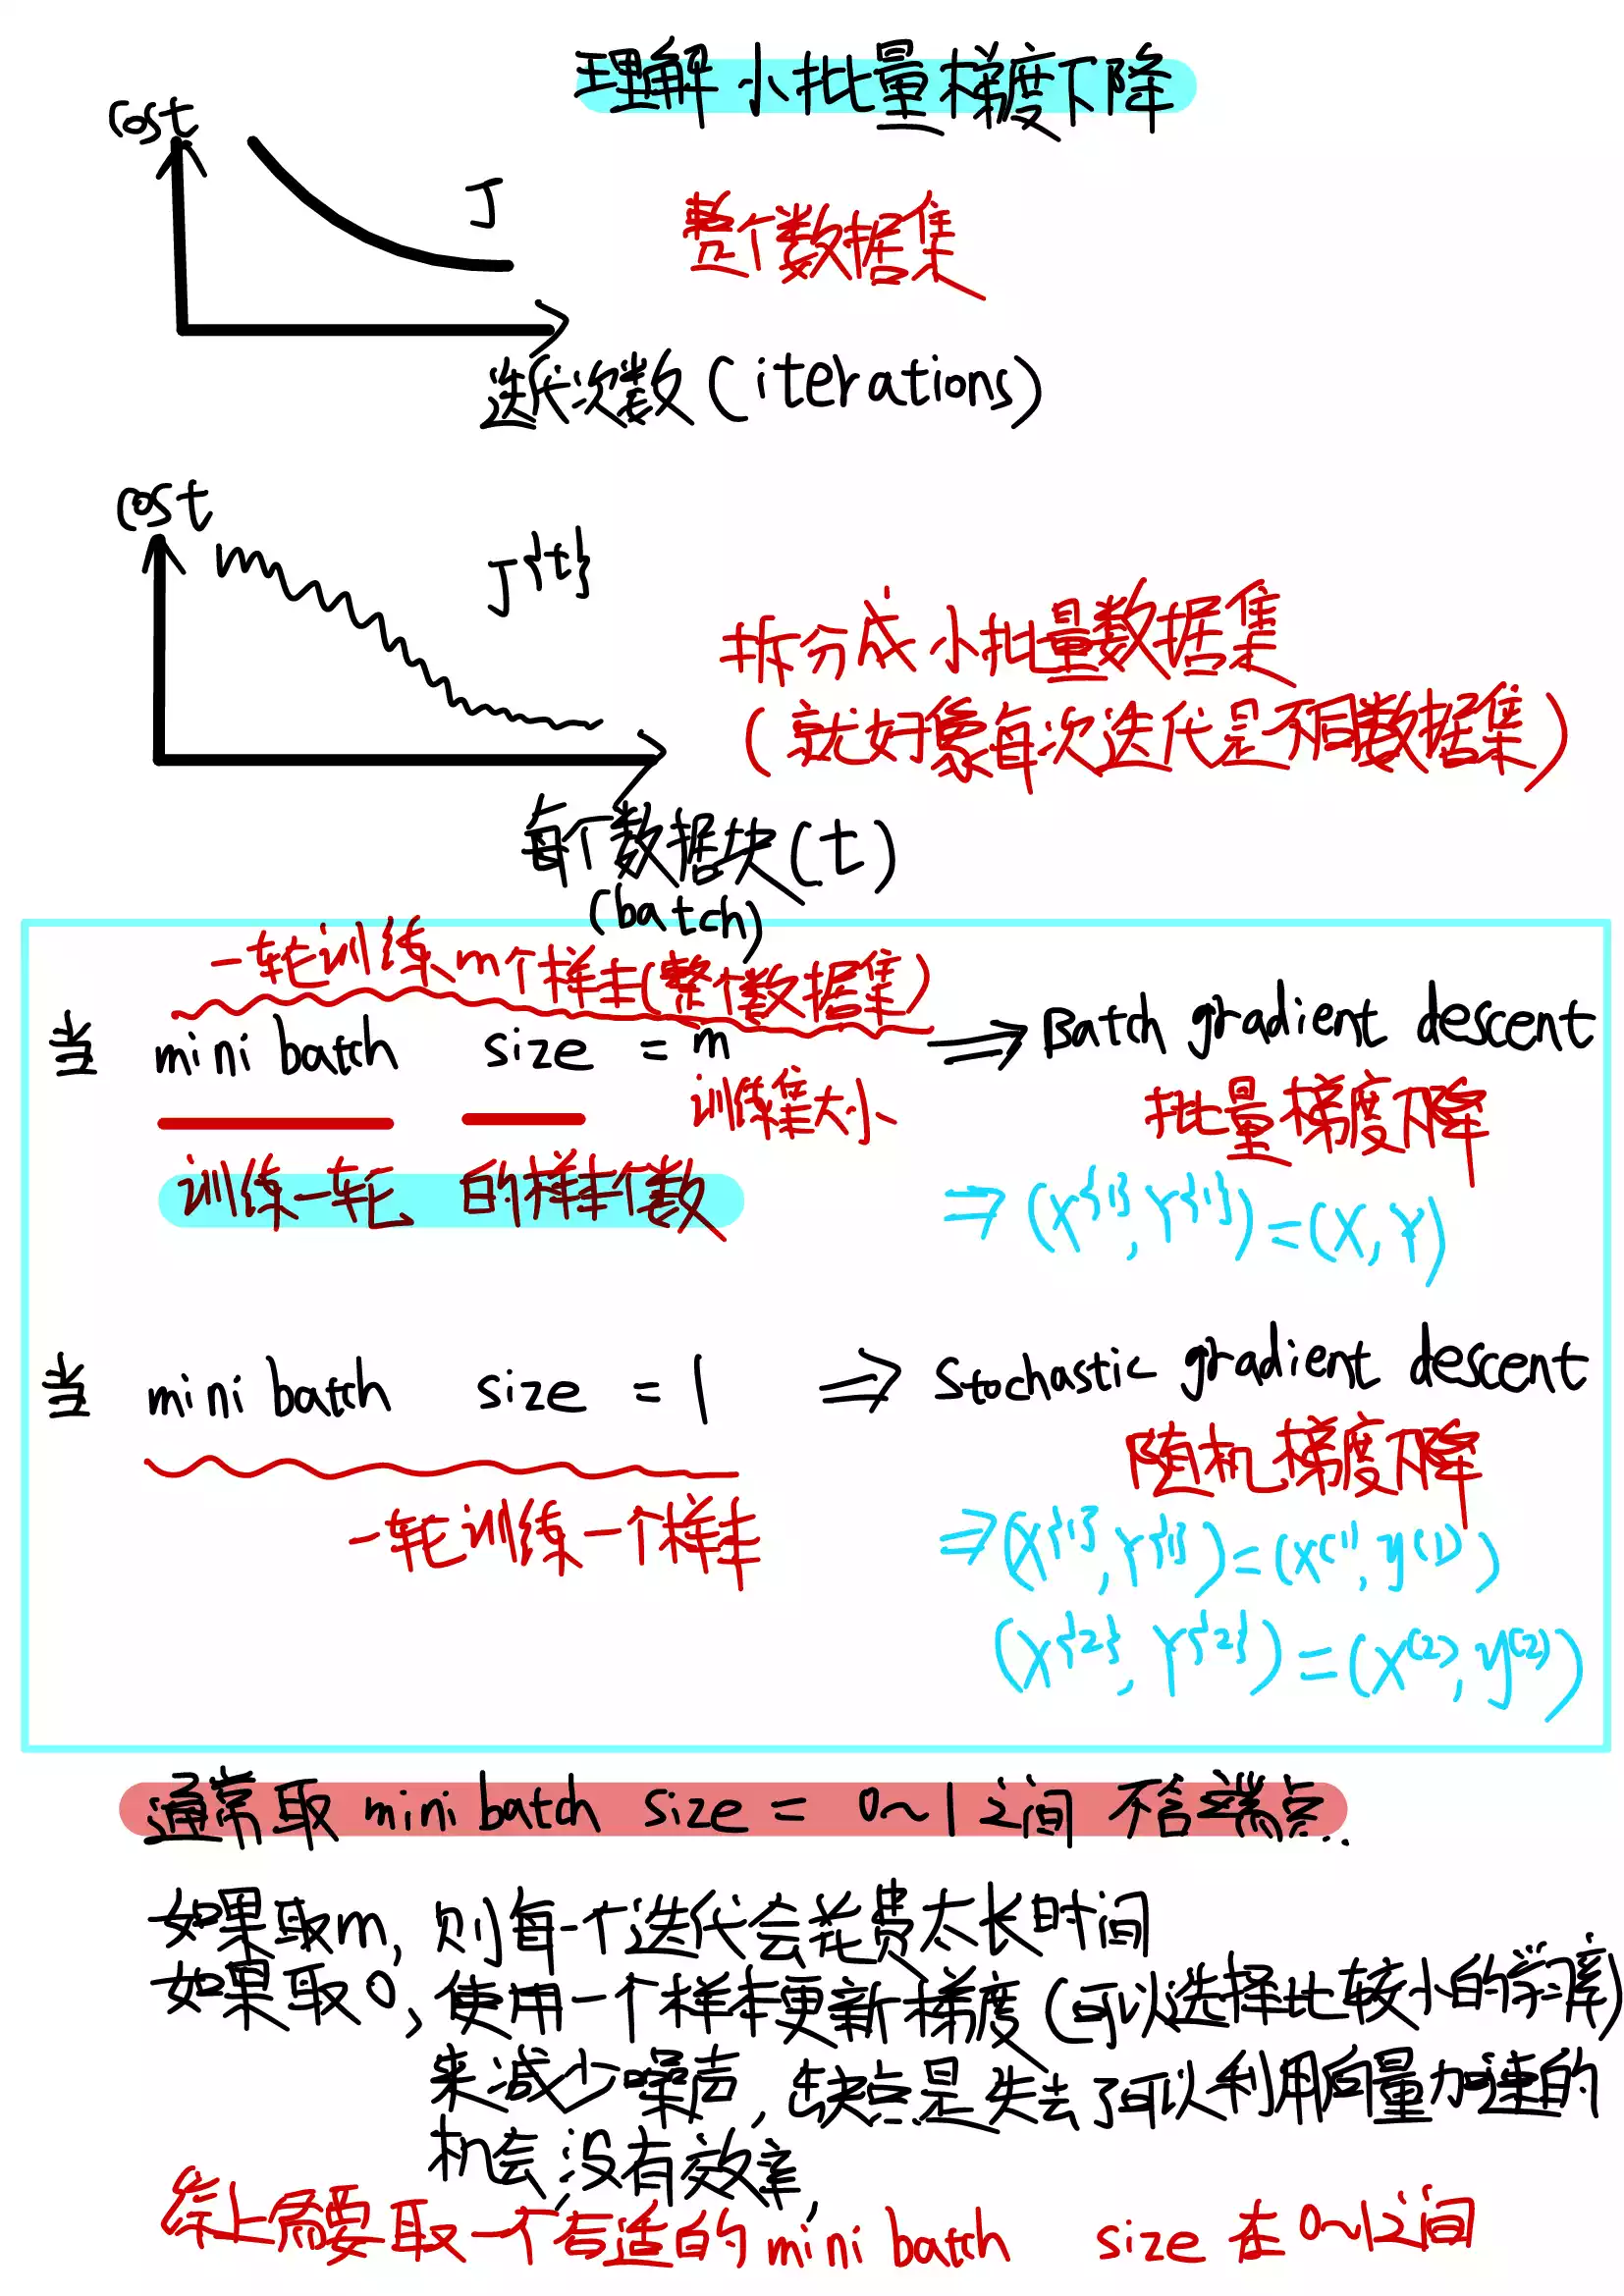 理解小批量梯度下降
cost
J
整个数据集
迭代次数(iterations)
cost
J^{t}
拆分成小批量数据集
(就好象每次迭代是不同数据集)
每个数据块(t)
(batch)
一轮训练m个样本(整个数据集)
当 mini batch size = m ⇒ Batch gradient descent
训练集大小
批量梯度下降
训练一轮 的样本个数
⇒ (X^{1}, Y^{1}) = (X, Y)
当 mini batch size = 1 ⇒ Stochastic gradient descent
随机梯度下降
一轮训练一个样本
⇒ (X^{1}, Y^{1}) = (x^(1), y^(1))
(X^{2}, Y^{2}) = (x^(2), y^(2))
通常取 mini batch size = 0~1之间 不含端点.
如果取m, 则每一个迭代会花费太长时间
如果取0, 使用一个样本更新梯度(可以选择比较小的学习率)
来减少噪声, 缺点是失去了可以利用向量加速的
机会, 没有效率,
综上需要取一个合适的 mini batch size 在0~1之间